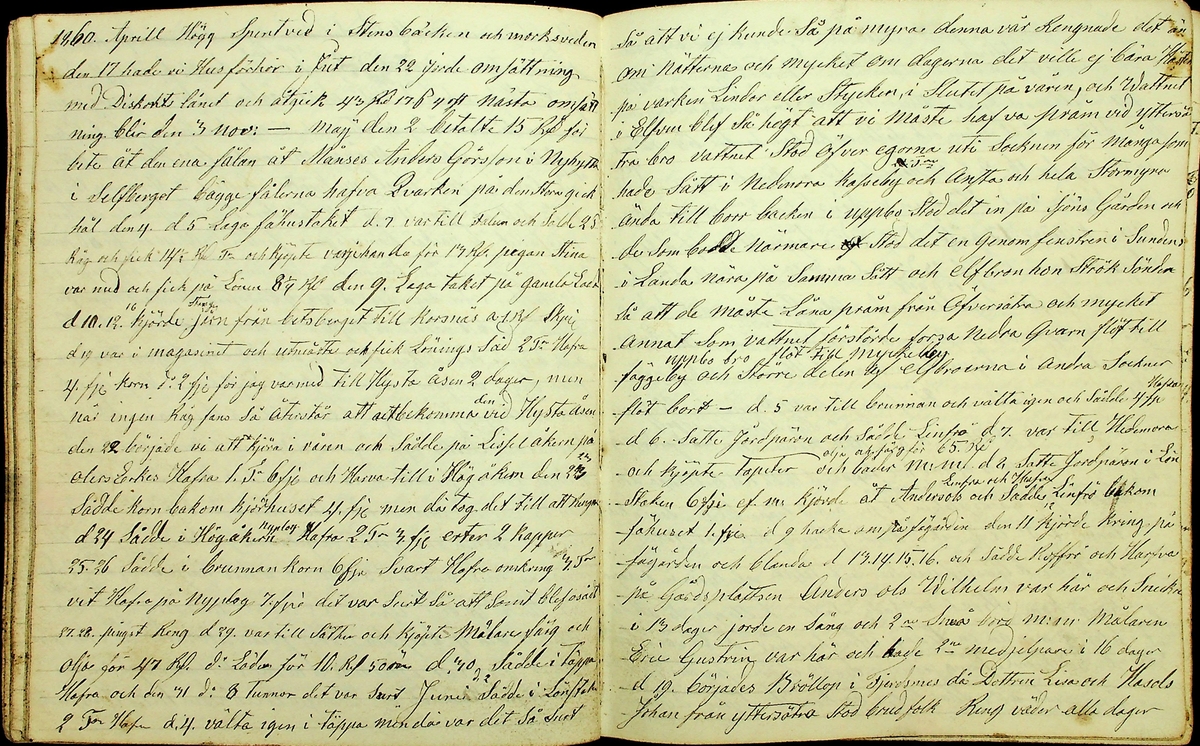 1860. Aprill Högg Spentved i Stensbäcken och morksveden
den 17 hade vi Husförhör i Fut den 22 jorde omsättning
med Diskont lånet och åtgick 43 Rd 17 β 4 rst Nästa omsätt
ning blir den 3 nov: — Maij den 2 betalte 15 Rd för
bete åt den ena fålan åt Månses Anders Görsson i Nyhyttn
i Silfberget bägge fålerna hafva Qvarken på den Stora gick
hål den 4. d 5 Laga fähustaket d. 7. var till dalen och Sålde 25
Råg och fick 14½ Rd Tn och kjöpte varjehanda för 13 Rd. pigan Stina
var med och fick på Lönen 8 Rd den 9. Laga taket på gamla
d 10. 12. 16 kjörde Stång jern från betsberget till Korsnäs
d 19 var i magasinet och utmätte och fick Lönings Säd 2 Tn Hafra
4 fjr Korn d: 2 fjr för jag var med till Hysta åsen 2 dager, men
när ingen Råg fans så återstår att utbekomma den vid Hysta åsen
den 22 började vi att kjöra i våren och Sådde på Lissel åkern på
olers Erkes Hafra 1. Tn 6 fjr och Harva till i Hög åkern den 23
Sådde korn bakom kjörhuset 4. fjr men då tog det till att Rengna
d 24 Sådde i Hög åkern Nyplog Hafra 2 Tn 3 fjr erter 2 kappar
25-26 Sådde i brunnan korn 6 fjr Svart Hafra omkring 3 Tn
vit Hafra på Nyplog 7. fjr det var Surt Så att Somt blef osådt
27.28. pingst Reng d 29. var till Säther och kjöpte Målare färg och
olja för 47 Rd. d: Läder för 10. Rd 50 öre d. 30 Sådde i Täppa
Hafra och den 31 d: 8 Tunnor det var Surt Juni d. 2 Sådde i Lönstaken
2 Tn Hafra d. 4. välta igen i täppa men då var det Så Surt
Så att vi ej kunde Så på myra denna vår Rengnade det än
om Nätterna och mycket om dagerna det ville ej bära Hästen
på varken Lindor eller Stycken, i Slutet på våren, och Wattnet
i Elfven blef Så högt att vi måste hafva pråm vid yttersä
tra bro vattnet Stod öfver egorna uti Socknen för många som
hade Sått i Nedernora Kasseby och Ansta och hela Stormyra
Ända till borr backen i uppbo Stod det in på Sjöns Gården och
de Som bodde närmare Stod det en Genom fenstren i Sundens
i Landa nära på Samma Sätt och elfbron hon Strök Sönder
Så att de måste Låna pråm från Öfversätra och mycket
annat Som vattnet förstörde forsa Nedra Qvarn flöt till
uppbo bro flöt till Myckelby
fäggeby och Större delen af elfbroerna i Andra Sockner
flöt bort — d. 5 var till brunnan och välta igen och Sådde 4 fjr Hafra
d 6. Satte Jordpäron och Sådde Linfrö d 7. var till Hedemora
och kjöpte tapeter olja och färg för 65. Rd
och bäcker m: m. d 8 Satte Jordpäron i Lön
Staken 6 fjr ef. m: kjörde åt Andersols och Sådde Linfrö bakom Linfrö och Hafra
fähuset 1. fjr d 9 hacka om fägården den 11 12 kjörde kring på
fägården och blanda d 13.14.15.16. och Sådde Roffrö och Harfva
på Gårdsplattsen Anders ols Wilhelm var här och Snickra
i 13 dager jorde en Säng och 2ne Små bord m: m: Målaren
Eric Gustrin var här och hade 2ne medjelpare i 16 dager
d 19. börjades Bröllop i Fjerdsmes då Dottren Lisa och Hasols
Johan från yttersätra Stod brudfolk Reng väder alla dager